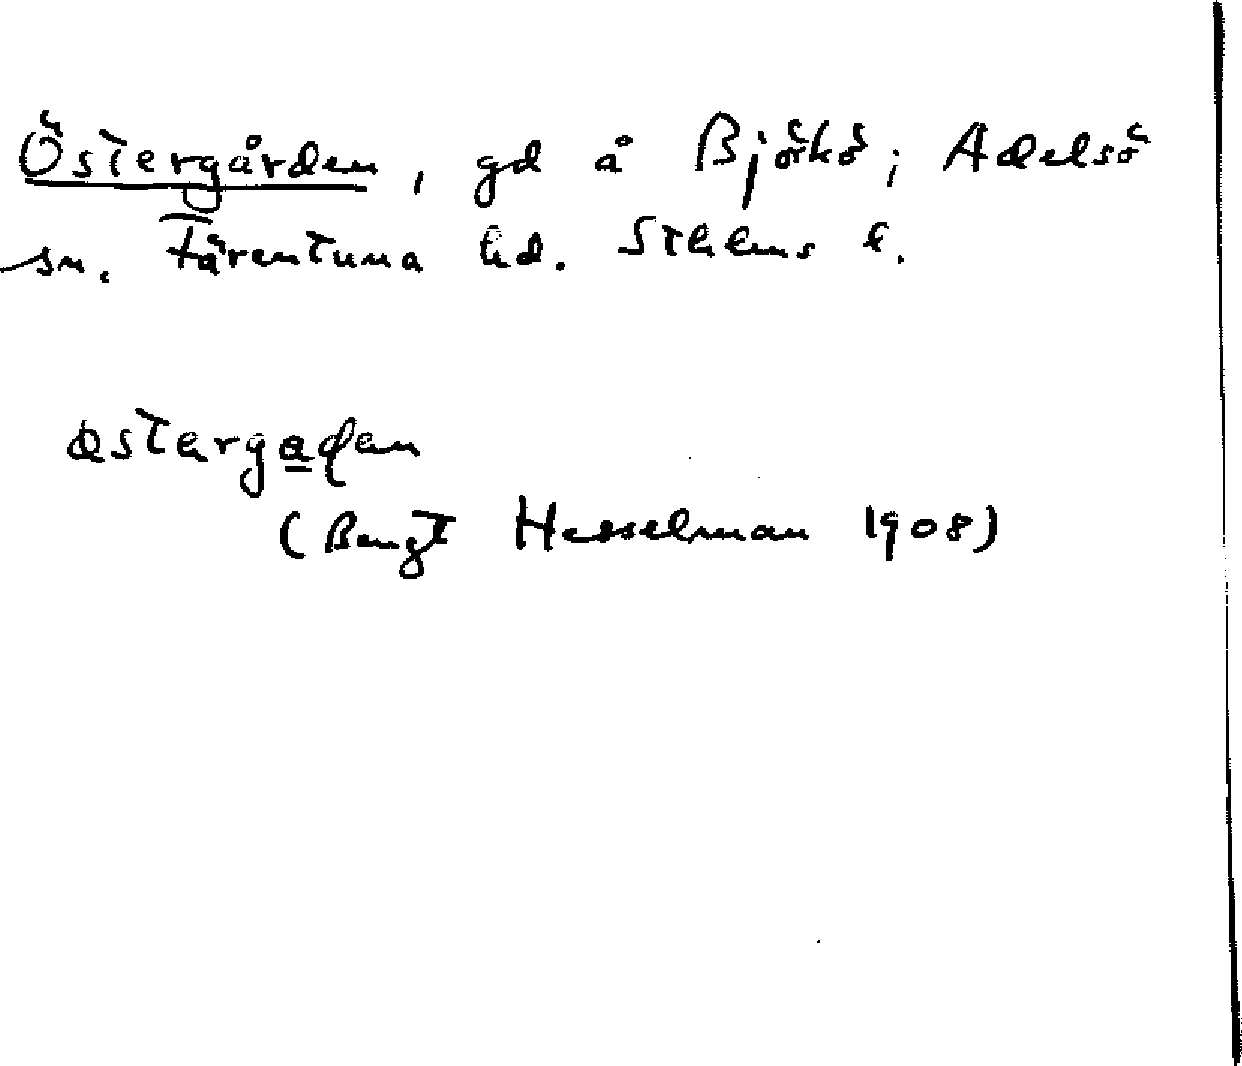 Östergården, gd å Björkö; Adelsö
sn. Färentuna hd. Sthlms l.
(Bengt Hesselman 1908)